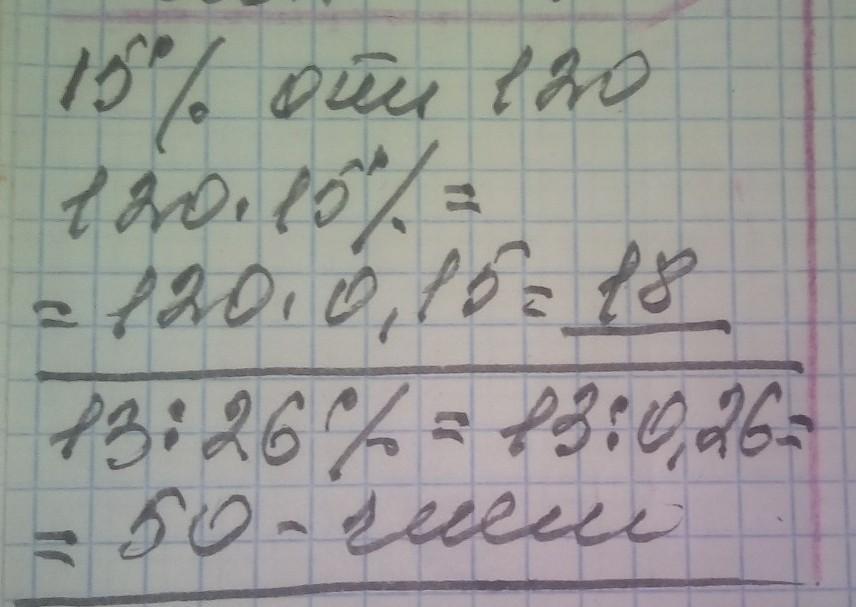 15% от 120
120·15% =
= 120·0,15 = 18
13:26% = 13:0,26=
= 50 -